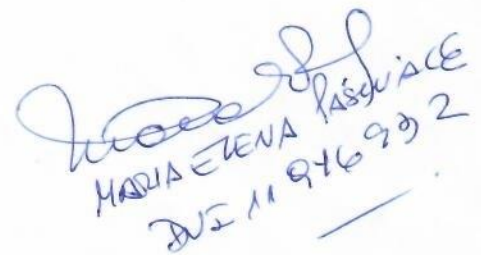 MARIA ELENA PASQUALE
DNI 11 976 992